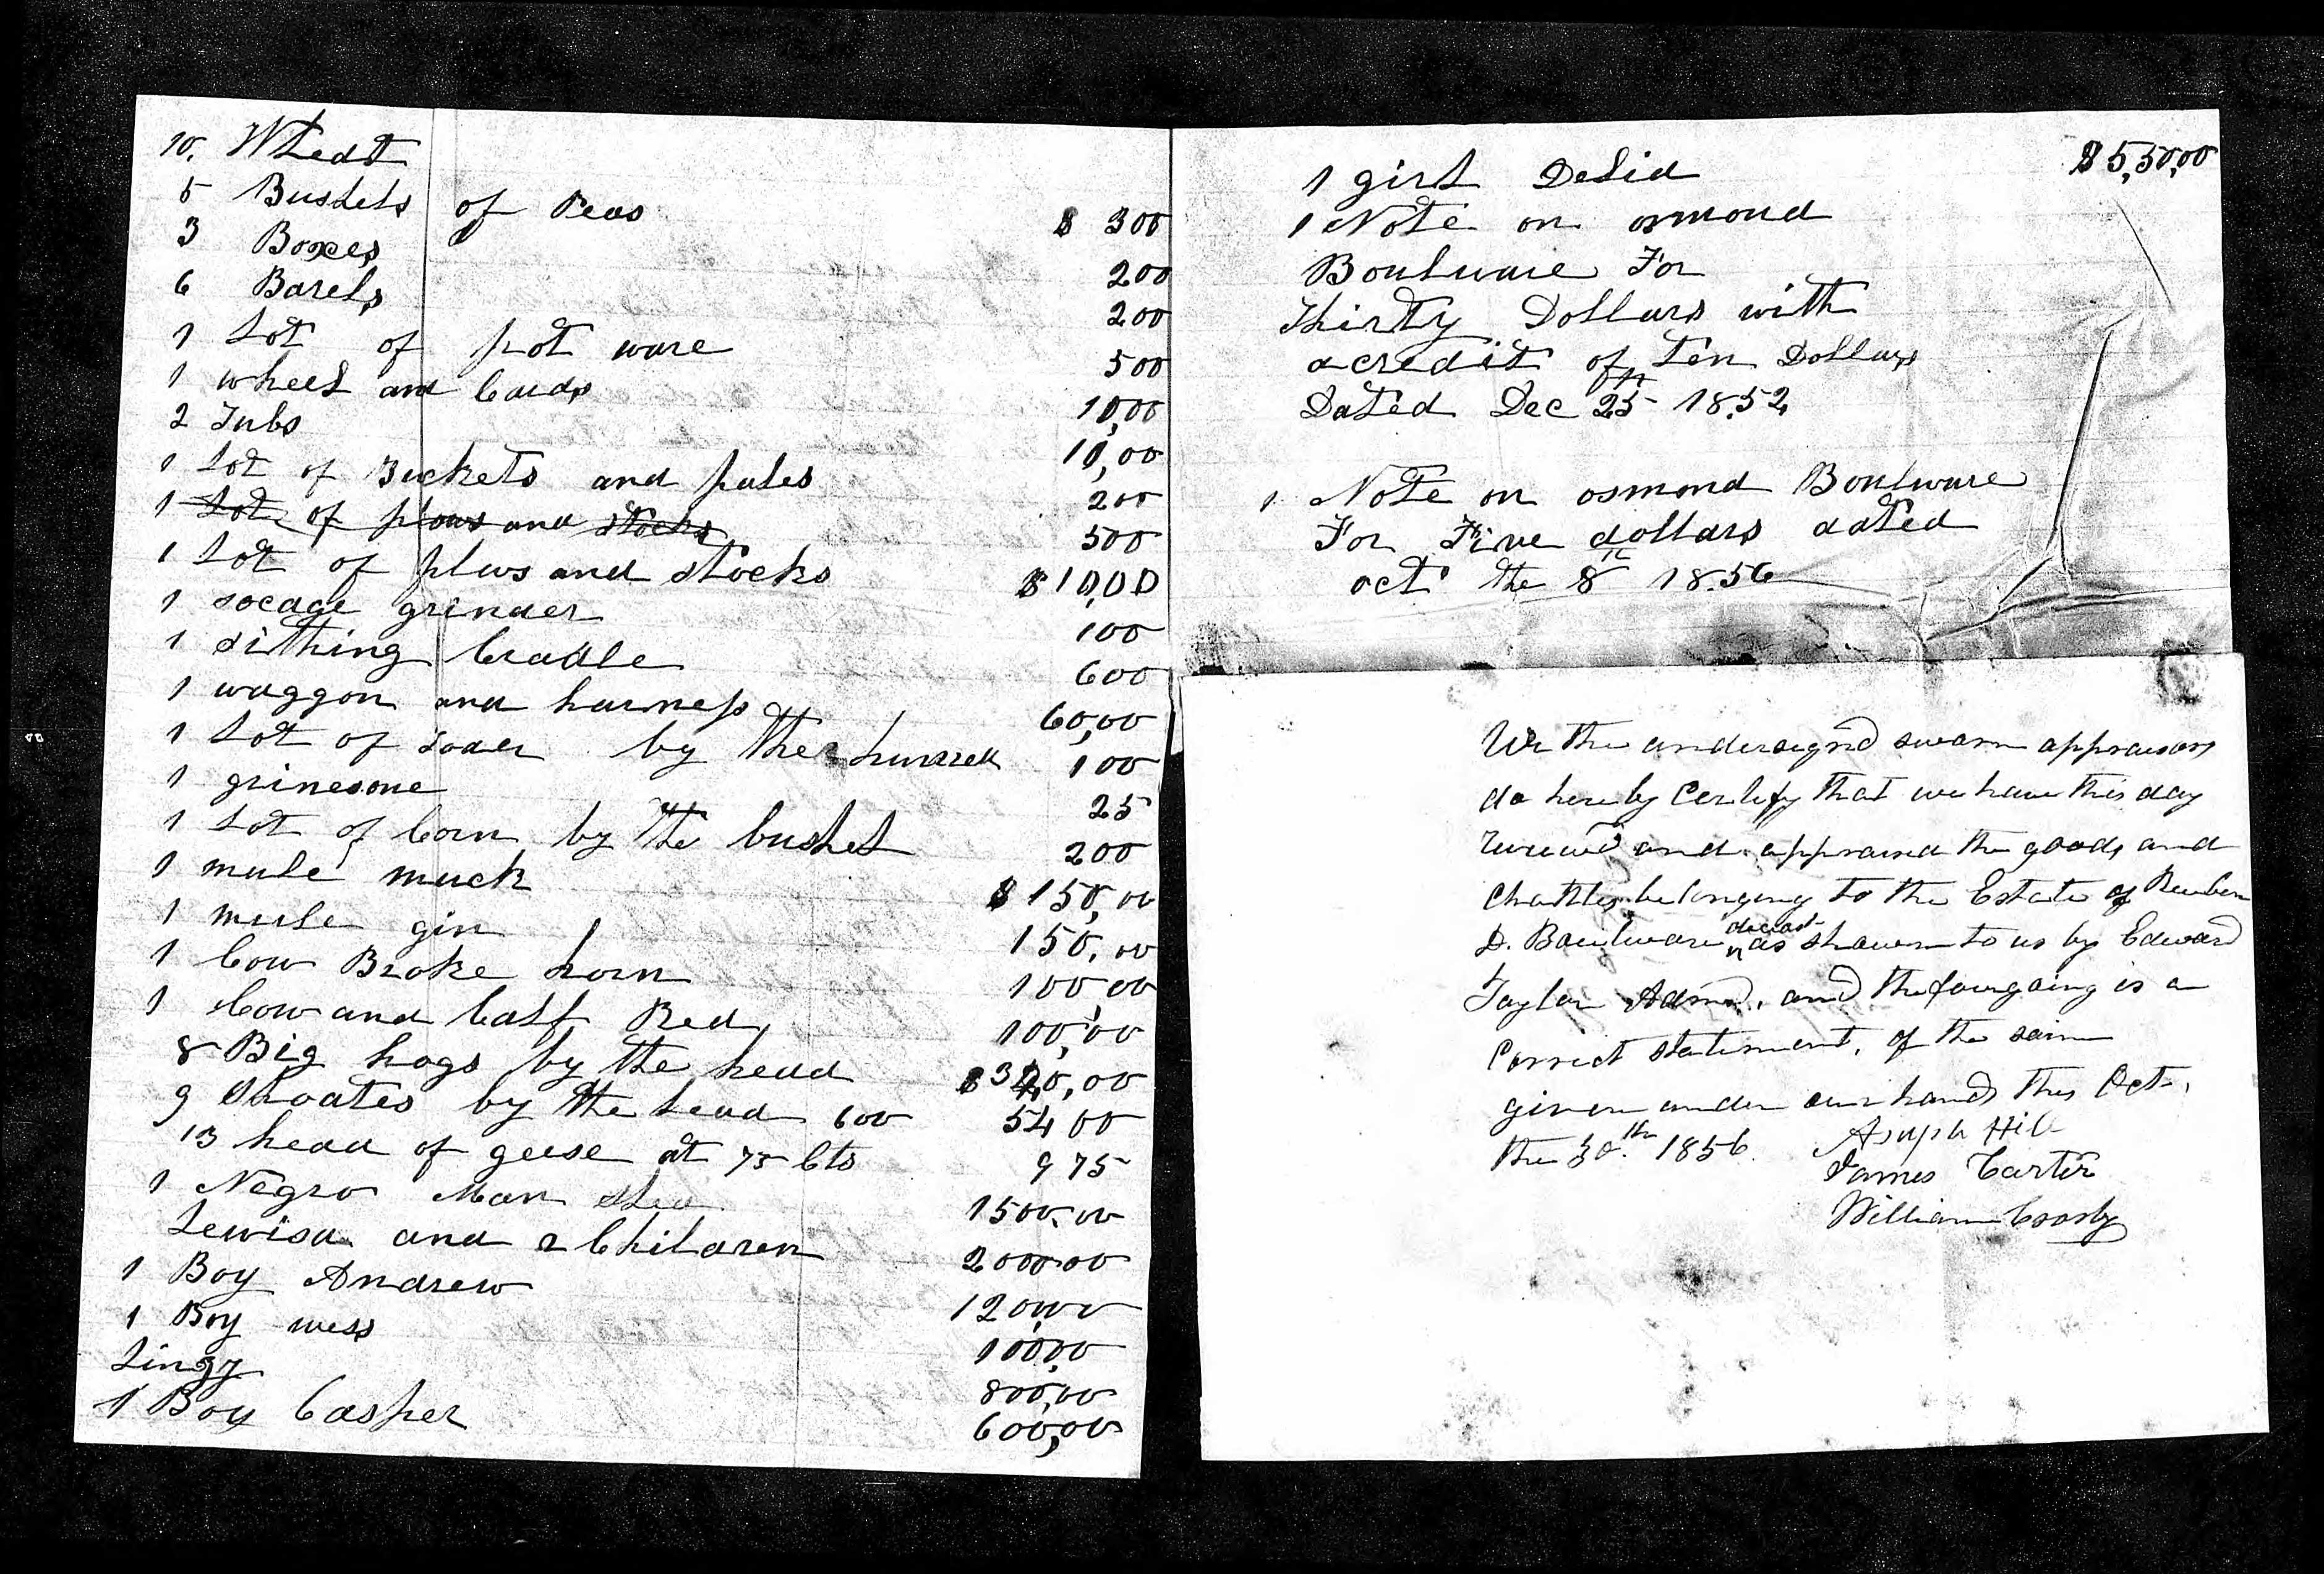 10. Wheat
5 Bushels of Peas $ 300
3 Boxes 200
6 Barels 200
1 Lot of pot ware 500
1 wheel and Cards 10,00
2 Tubs 10,00
1 Lot of Buckets and pales 200
1 Lot of plows and stocks 500
1 Lot of plws and stocks $10,00
1 socage grinder 100
1 sithing Cradle 600
1 waggon and harness 60,00
1 Lot of foder by the hundred 100
1 grinesone 25
1 Lot of Corn by the bushel 200
1 mule muck $150,00
1 mule gin 150,00
1 Cow Broke horn 100,00
1 Cow and Calf Red 100,00
8 Big hogs by the head 00
9 Shoates by the head 600 54 00
13 head of geese at 75 Cts 9 75
1 Negro Man 1500.00
Lewisa and 2 Children 2000.00
1 Boy Andrew 1200
1 Boy wess 1000,00
Linzy 800,00
1 Boy Casper 600,00
1 girl Delia $5,50,00
1 Note on osmond
Boulware For
Thirty Dollars with
a credit of Ten Dollars
Dated Dec 25th 1852
1 Note on osmond Boulware
For Five dollars dated
oct the 8th 1856
We the undersignd sworn appraisors
do hereby Certify that we have this day
viewed and appraised the goods and
Chattles belonging to the Estate of Reuben
D. Boulware decast as shown to us by Edward
Taylor Admr. and the fourgoing is a
Correct statement, of the same
given under our hands this Oct.
the 30th 1856. Asaph Hill
James Carter
William Crosby